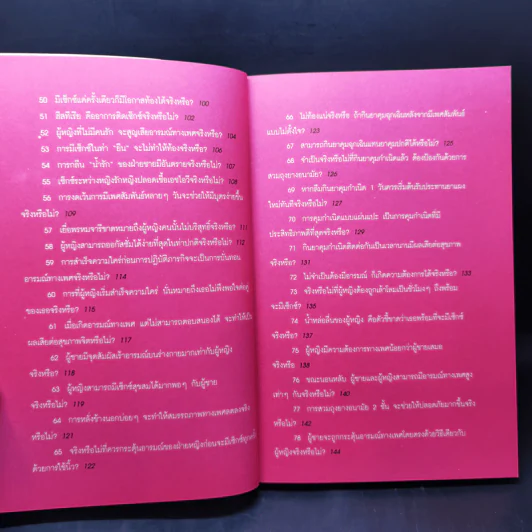 50 มีเซ็กซ์แค่ครั้งเดียวก็มีโอกาสท้องได้จริงหรือ? 100
51 ฮิสทีเรีย คืออาการติดเซ็กซ์จริงหรือไม่? 102
52 ผู้หญิงที่ไม่มีคนรัก จะสูญเสียอารมณ์ทางเพศจริงหรือ? 104
53 การมีเซ็กซ์ในท่า "ยืน" จะไม่ทำให้ท้องจริงหรือ? 106
54 การกลืน "น้ำรัก" ของฝ่ายชายมีอันตรายจริงหรือไม่? 107
55 เซ็กซ์ระหว่างหญิงรักหญิงปลอดเชื้อเอชไอวีจริงหรือไม่? 108
56 การงดเว้นการมีเพศสัมพันธ์หลายๆ วันจะช่วยให้มีบุตรง่ายขึ้น
จริงหรือไม่? 109
57 เยื่อพรหมจารีขาดหมายถึงผู้หญิงคนนั้นไม่บริสุทธิ์จริงหรือ? 111
58 ผู้หญิงสามารถออกัสซั่มได้ง่ายที่สุดในท่าปกติจริงหรือไม่? 112
59 การสำเร็จความใคร่ก่อนการปฏิบัติภารกิจจะเป็นการบั่นทอน
อารมณ์ทางเพศจริงหรือไม่? 114
60 การที่ผู้หญิงเริ่มสำเร็จความใคร่ นั่นหมายถึงเธอไม่พึงพอใจต่อคู่
ของเธอจริงหรือ? 115
61 เมื่อเกิดอารมณ์ทางเพศ แต่ไม่สามารถตอบสนองได้ จะทำให้เป็น
ผลเสียต่อสุขภาพจิตหรือไม่? 117
62 ผู้ชายมีจุดสัมผัสเร้าอารมณ์บนร่างกายมากเท่ากับผู้หญิง
จริงหรือ? 118
63 ผู้หญิงสามารถมีเซ็กซ์สุขสมได้มากพอๆ กับผู้ชาย
จริงหรือไม่? 119
64 การหลั่งข้างนอกบ่อยๆ จะทำให้สมรรถภาพทางเพศลดลงจริง
หรือไม่? 121
65 จริงหรือไม่ที่ควรกระตุ้นอารมณ์ของฝ่ายหญิงก่อนจะมีเซ็กซ์ทุกครั้ง
ด้วยการใช้นิ้ว? 122
66 ไม่ท้องแน่จริงหรือ ถ้ากินยาคุมฉุกเฉินหลังจากมีเพศสัมพันธ์
แบบไม่ตั้งใจ? 123
67 สามารถกินยาคุมฉุกเฉินแทนยาคุมปกติได้หรือไม่? 125
68 จำเป็นจริงหรือไม่ที่กินยาคุมกำเนิดแล้ว ต้องป้องกันด้วยการ
สวมถุงยางอนามัย? 126
69 หากลืมกินยาคุมกำเนิด 1 วันควรเริ่มต้นรับประทานยาแผง
ใหม่ทันทีจริงหรือไม่? 127
70 การคุมกำเนิดแบบแผ่นแปะ เป็นการคุมกำเนิดที่มี
ประสิทธิภาพดีที่สุดจริงหรือ? 129
71 กินยาคุมกำเนิดติดต่อกันเป็นเวลานานก่อมีผลเสียต่อสุขภาพ
จริงหรือ? 131
72 ไม่จำเป็นต้องมีอารมณ์ ก็เกิดความต้องการได้จริงหรือ? 133
73 จริงหรือไม่ที่ผู้หญิงต้องถูกเล้าโลมเป็นชั่วโมงๆ ถึงพร้อม
จะมีเซ็กซ์? 135
74 น้ำหล่อลื่นของผู้หญิง คือตัวชี้ขาดว่าเธอพร้อมที่จะมีเซ็กซ์
จริงหรือ? 137
75 ผู้หญิงมีความต้องการทางเพศน้อยกว่าผู้ชายเสมอ
จริงหรือ 138
76 ขณะนอนหลับ ผู้ชายและผู้หญิงสามารถมีอารมณ์ทางเพศสูง
เท่าๆ กันจริงหรือไม่? 140
77 การสวมถุงยางอนามัย 2 ชั้น จะช่วยให้ปลอดภัยมากขึ้นจริง
หรือไม่? 142
78 ผู้ชายจะถูกกระตุ้นอารมณ์ทางเพศโดยตรงด้วยวิธีเดียวกับ
ผู้หญิงจริงหรือไม่? 144